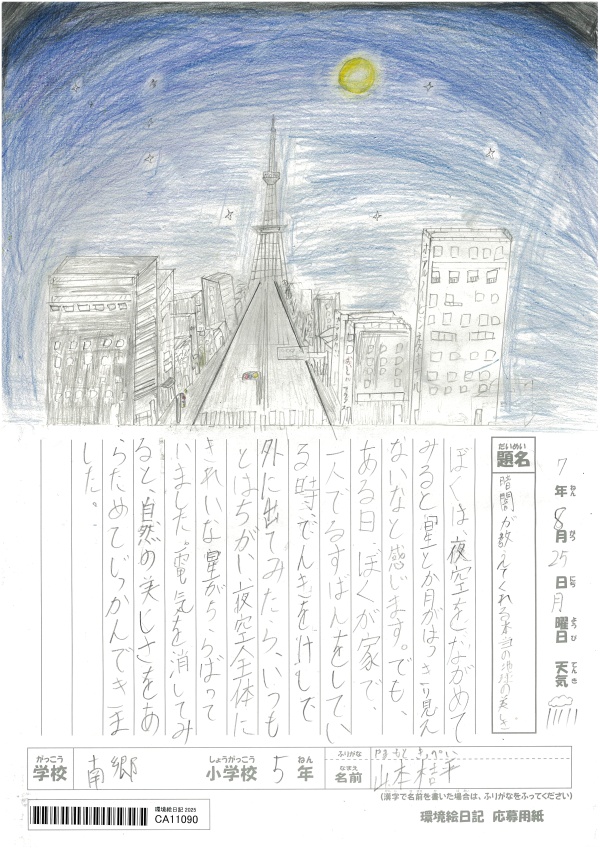 7年8月25日月曜日 天気
ねん がつ にち ようび てんき
だいめい
題名
暗闇が教えてくれる本当の地球の美しさ
ぼくは、夜空をながめて
みると星とか月がはっきり見え
ないなと感じます。でも、
ある日、ぼくが家で、
一人でるすばんをしてい
る時、でんきをけして
外に出てみたら、いつも
とはちがい、夜空全体に
きれいな星がちらばって
いました。電気を消してみ
ると、自然の美しさをあ
らためてじっかんできま
した。
がっこう
学校
南郷
しょうがっこう
小学校
5
ねん
年
ふりがな
やまもと きっぺい
なまえ
名前
山本桔平
(漢字で名前を書いた場合は、ふりがなをふってください)
環境絵日記 2025
CA11090
環境絵日記 応募用紙